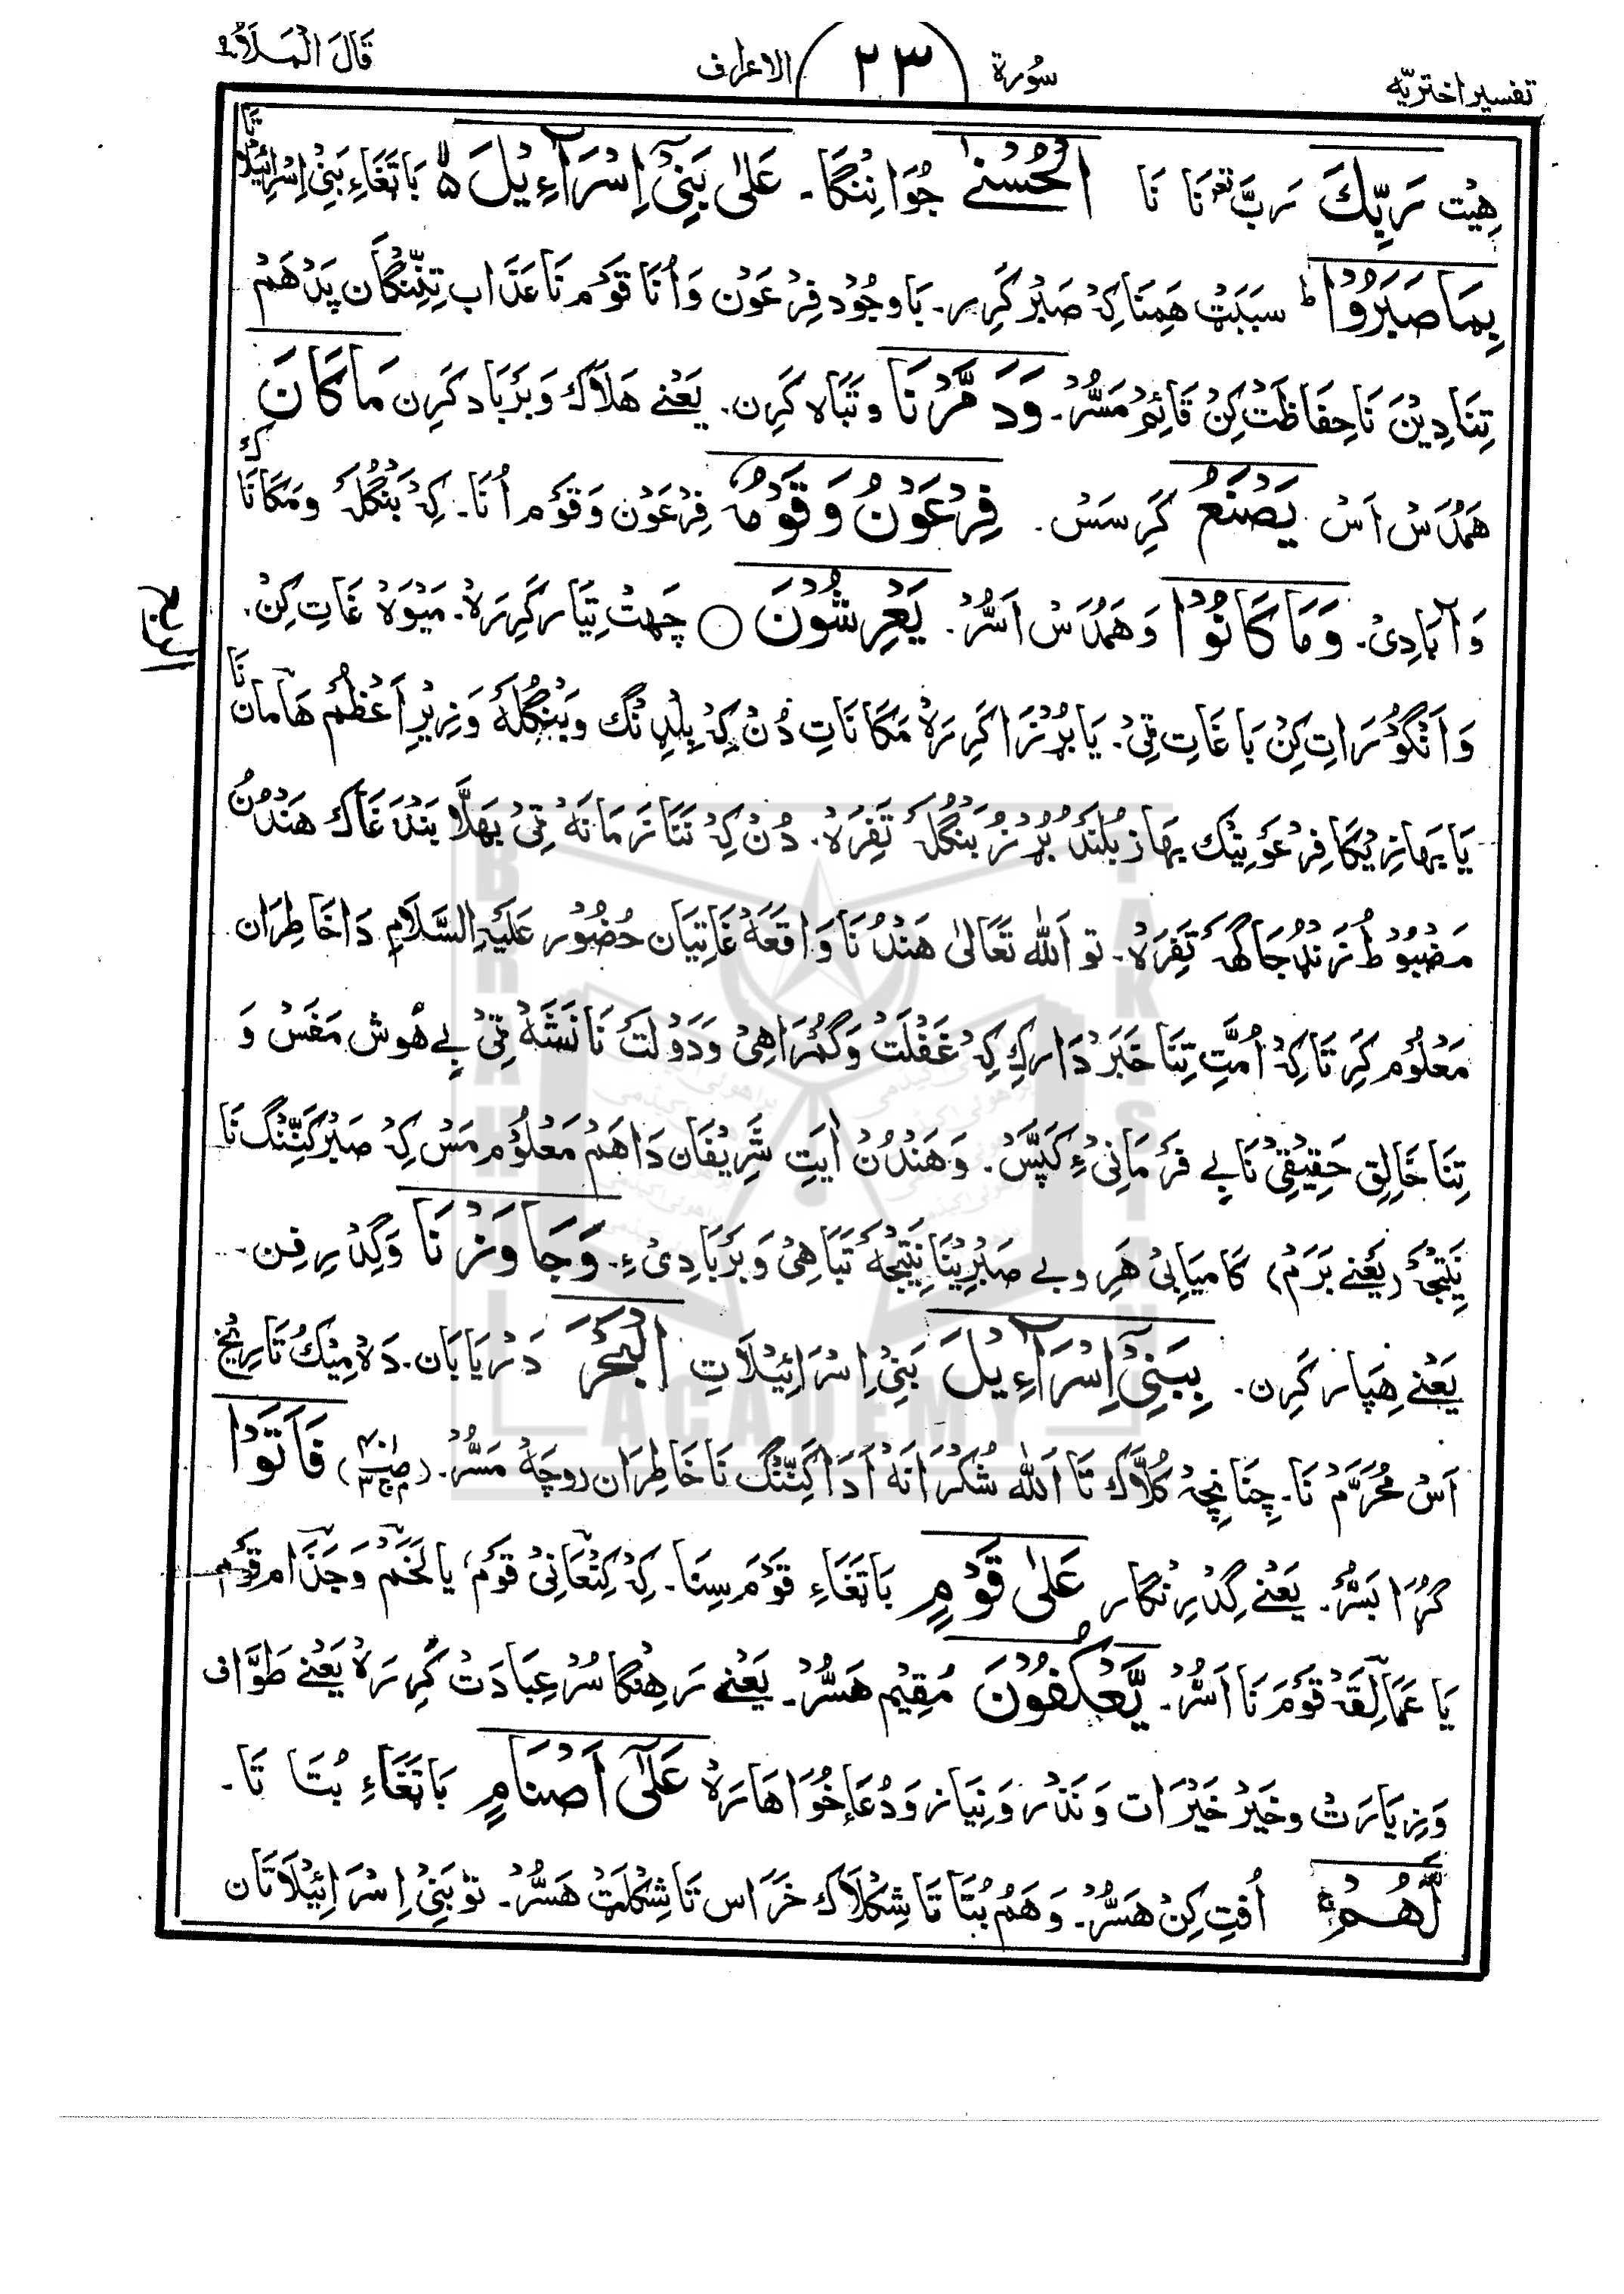 تفسیر اختریّه سُورة ۲۳ الاعراف قَالَ الْمَلَاُ ۹
هِیْت رَبِّكَ رَبَّ نَا نَا الْحُسْنٰے جُوَانِنگَا۔ عَلٰی بَنِیْۤ اِسْرَآءِیْلَ ۵ بَاتَغَاءِ بَنِیْ اِسْرَائِیْلَا تَا
بِمَا صَبَرُوْا ؕ سَبَبَتْ هَمِنَا کِہْ صَبْر کَرِر۔ بَاوجُوْد فِرْعَوْن وَ اُنَا قَوْم نَا عَذَاب تِنِّنْگَان پَدْ هَمْ
تِنَا دِیْن نَا حِفَاظَتْ کِنْ قَائِمْ مَسُّرْ۔ وَدَمَّرْنَا وتَبَاہ کَرِن۔ یَعْنے هَلَاَك وَ بَرْبَاد کَرِن مَا كَانَ
هَمُدَسْ اَسْ یَصْنَعُ کَرِسَسْ۔ فِرْعَوْنُ وَ قَوْمُهٗ فِرْعَوْن وَ قَوْم اُنَا۔ کِہْ بَنْگُلَہ ومَکَانَا كِ
وَآبَادِیْ۔ وَ مَا كَانُوْا وَهَمُدَسْ اَسُّرْ۔ یَعْرِشُوْنَ ○ چَهتْ تِیَار کَرِرَہْ۔ مَیْوَہْ غَاتِ کِنْ۔
وَ اَنْگُوْرَاتِ کِنْ بَاغَاتِ ٹِیْ۔ یَا بُرْنزَا کَرِرَہْ مَکَانَاتِ دُنْ کِہْ بِلْڈِنْگ وبَنْگُلَہ وَزِیْرِ اَعْظَمْ هَامَان نَا
یَا بَهازِیْکَا فِرْعَوْنِیْك بَهاز بُلَنْد بُرْنز بَنْگُلَہ تَفِرَہْ۔ دُنْ کِہْ نَنَا زَمَانَہ ٹِیْ بَهلَّا بَنْدَغَاك هَنْدُن
مَضْبُوْط جَاگَہ تَفِرَہْ۔ تو اَللّٰه تَعَالٰی هَنْدُنَا وَاقَعَہْ غَاتِیَان حُضُوْر عَلَیْہِ السَّلَام دَا خَاطِرَان
مَعْلُوْم کَرِ تَاکِہْ اُمَّتِ تِنَا خَبَرْدَار کِہْ غَفْلَتْ وَگُمْرَاهِیْ وَدَوْلَتْ نَا نَشَہْ ٹِیْ بِے هُوش مَفَسْ وَ
تِنَا خَالِقِ حَقِیْقِیْ نَا بِے فَرْمَانِیْءِ کَپَّسْ۔ وَهَنْدُنْ اٰیَتِ شَرِیْفَان دَاهَمْ مَعْلُوْم مَسْ کِہْ صَبْر کَنِّنْگ نَا
نَتِیْجَہْ (یَعْنے بَرَمْ) کَامِیَابِیْ هَرِ و بے صَبْرِیْنَا نَتِیْجَہ تَبَاهِیْ وَ بَرْبَادِیْءِ۔ وَ جٰوَزْنَا وَگِدْرِفِن۔
یَعْنے هِپَار کَرِن۔ بِبَنِیْۤ اِسْرَآءِیْلَ بَنِیْ اِسْرَائِیْلَاتِ الْبَحْرَ دَرْیَابَان۔ دَہْ مِیْكُ تَارِیْخ
اَسْ مُحَرَّمْ نَا۔ چُنَانِچِہْ کُلَّاك تَا اَللّٰه شُکْرَانَہْ اَدَا کَنِّنْگ نَا خَاطِرَان روچَہْ مَسُّرْ۔ فَاَتَوْا
گُرَا بَسُّرْ۔ یَعْنے گِدْرِنْگَار عَلٰى قَوْمٍ بَاتَغَاءِ قَوْمَ سِنَا۔ کِہْ کِنْعَانِیْ قَوْمْ، یَا لَخَمْ وَ جَذَام قَوْم
یَا عَمَالِقَہْ قَوْمَ نَا اَسُّرْ۔ یَّعْكُفُوْنَ مُقِیْم هَسُّرْ۔ یَعْنے رَهِنْگَا سُرْ عِبَادَتْ کَرِرَہْ یَعْنے طَوَّاف
وَزِیَارَتْ وخَیْر خَیْرَات وَ نَذْر وَنِیَاز وَ دُعَا خُوَاهَارَہْ عَلٰۤى اَصْنَامٍ بَاتَغَاءِ بُتَا تَا۔
لَّهُمْ ۚ اُفتِ کِنْ هَسُّرْ۔ وَهَمْ بُتَا تَا شِکْلَاك خَرَاس تَا شِکْلَتْ هَسُّرْ۔ تو بَنِیْ اِسْرَائِیْلَاتَان
BRAHUI ACADEMY PAKISTAN